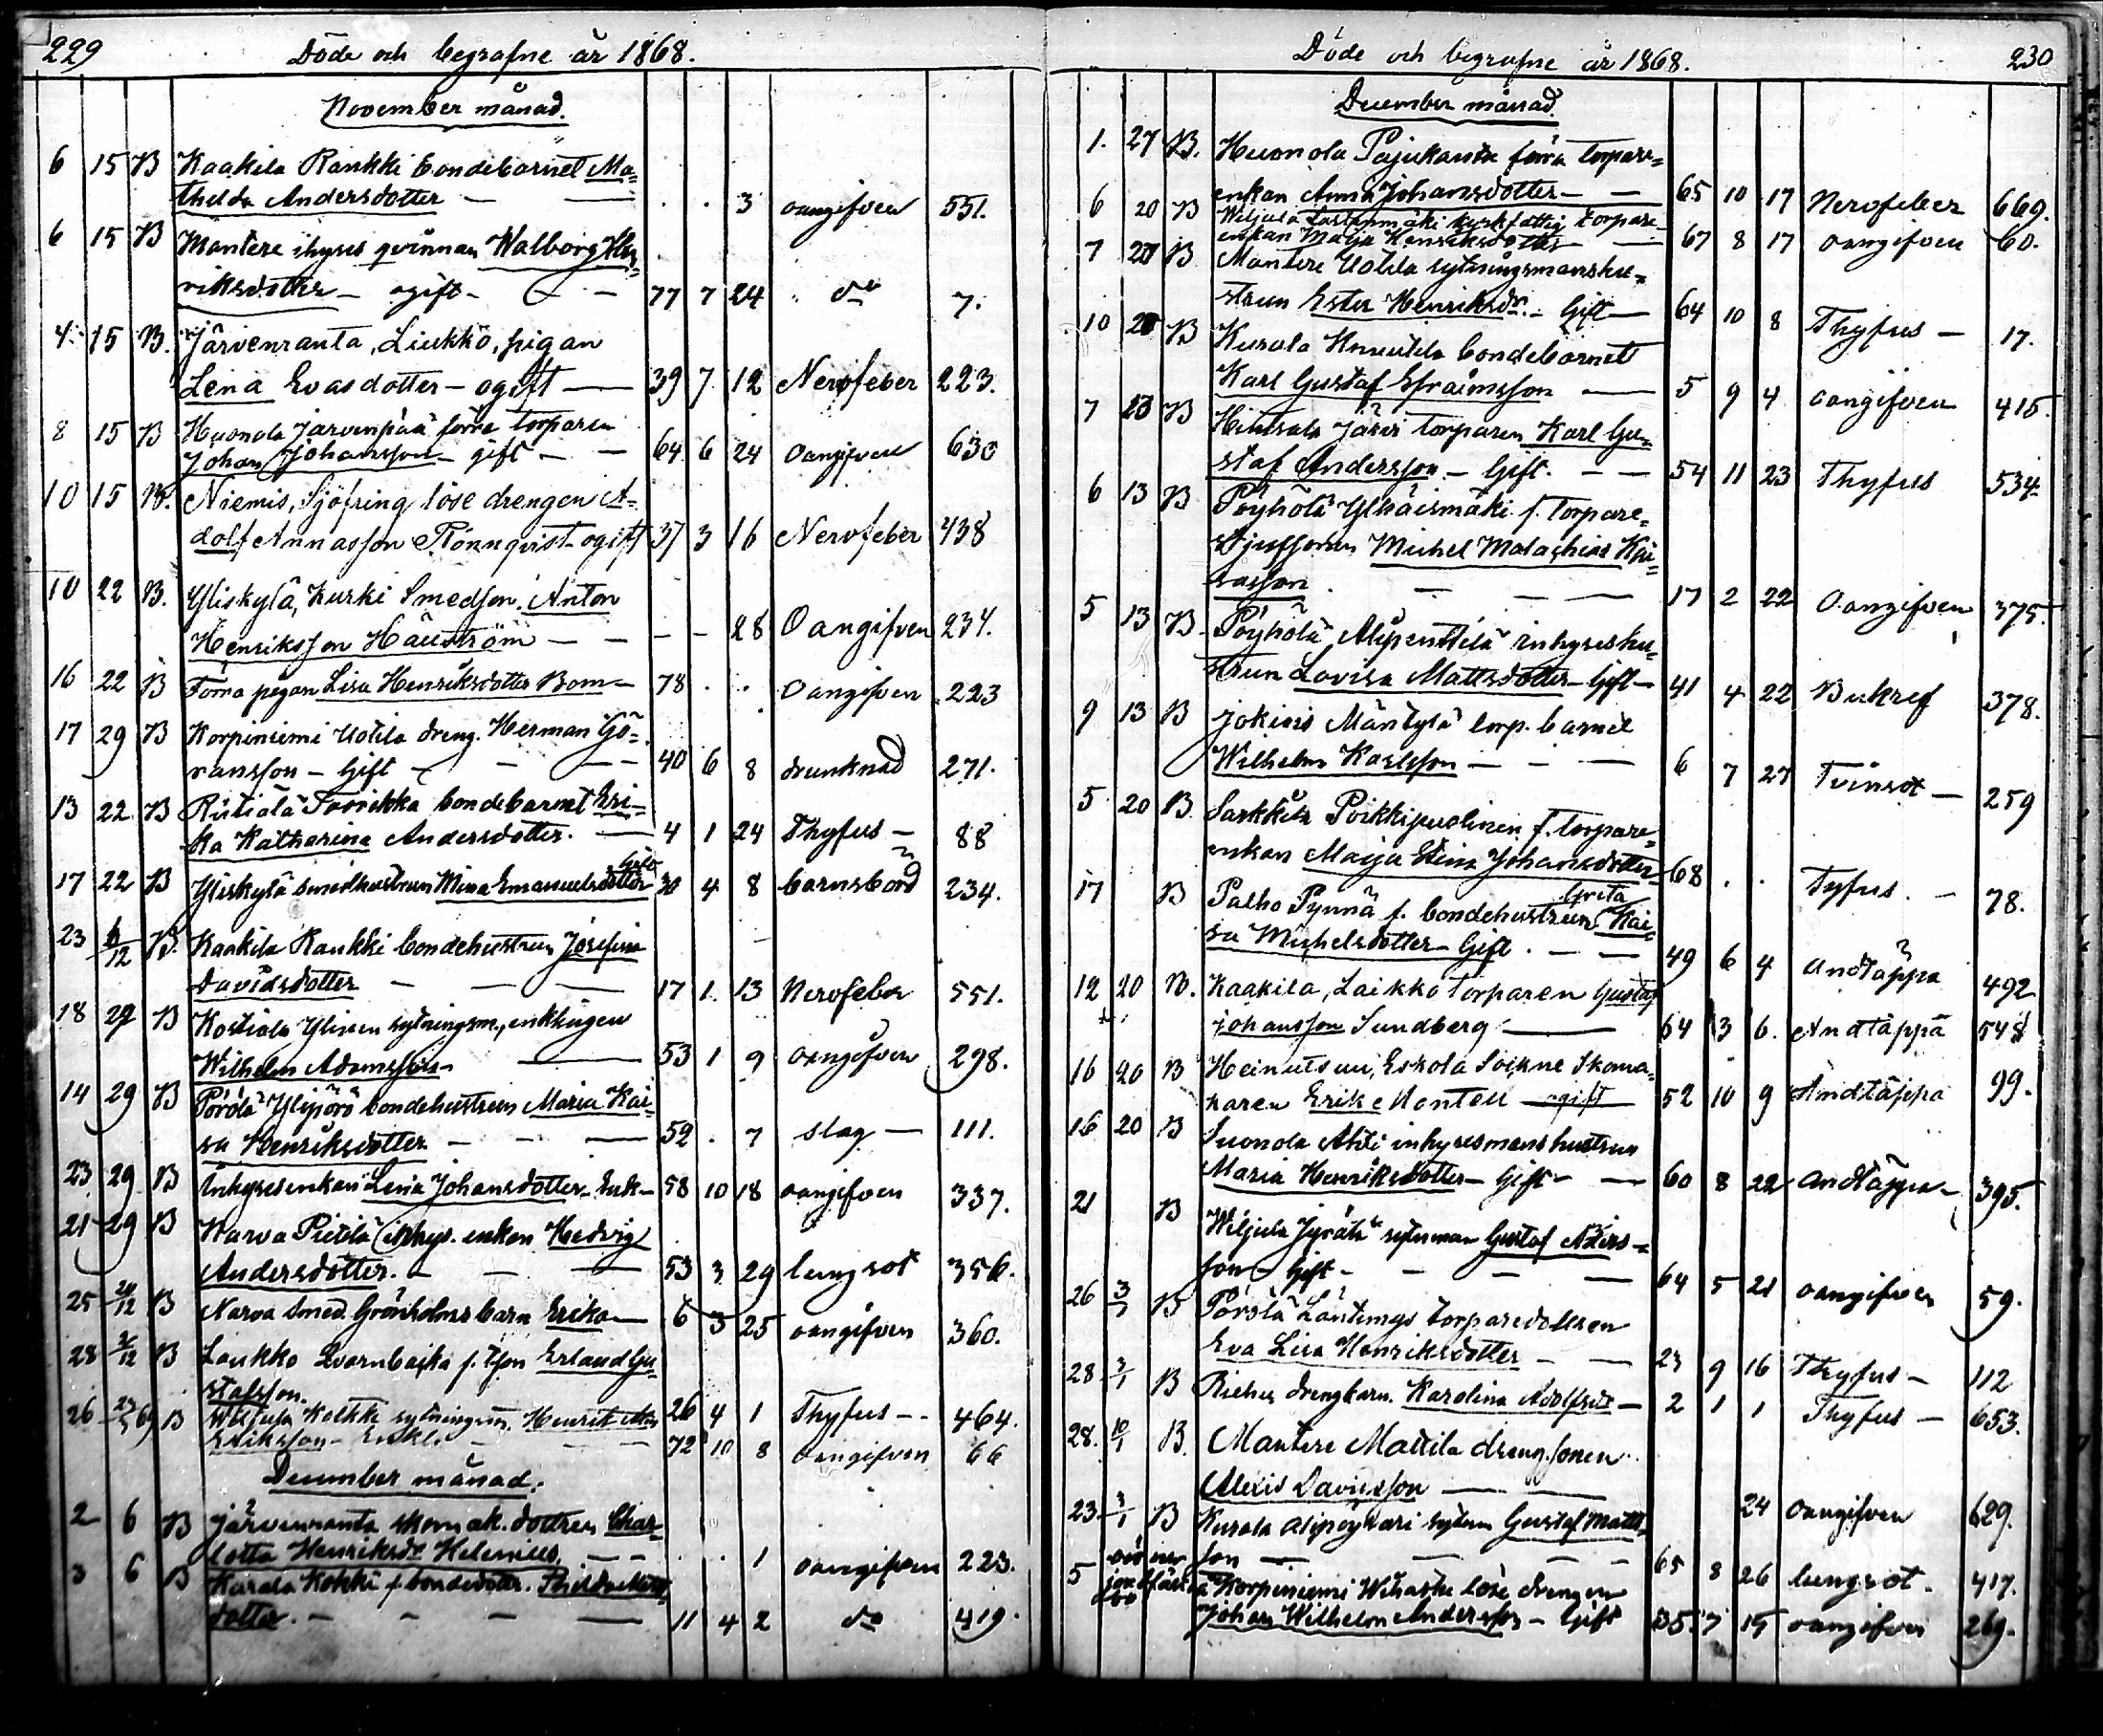 229 Döde och begrafne år 1868.
November månad.
6 15 B Kaakila Rankki bondebarnet Ma=
thelda Andersdotter — — . . 3 oangifven 551.
6 15 B Mantere ihyses qvinnan Walborg Hen=
riksdotter — ogift — — 77 7 24 do 7.
4 15 B. Järvenranta, Liukko, pigan
Lena Evasdotter — ogift — 39 7 12 Nervfeber 223.
8 15 B Huonola Järvenpää förra torparen
Johan Johansson — gift — — 64 6 24 oangifven 630
10 15 B. Niemis, Sjöfring löse drengen A=
dolf Annasson Rönnqvist ogift 37 3 16 Nervfeber 438
10 22 B. Yliskylä, Kurki Smedson Anton
Henriksson — — — 28 Oangifven 234.
16 22 B Förra pigan Lisa Henriksdotter Bom — 78 . . oangifven 223
17 29 B Korpiniemi Uotila dreng. Herman Gö=
ransson — Gift — — 40 6 8 drunknad 271.
13 22 B bondebarnet Eri=
ka Katharina Andersdotter. — 4 1 24 Thyfus — 88
17 22 B Yliskylä smedhustrun Mina Emanuelsdotter Gift 30 4 8 barnsbörd 234.
23 6/12 B. Kaakila Rankki bondehustrun Josefina
Davidsdotter — — — 17 1. 13 Nervfeber 551.
18 29 B Kostiala Ylinen sytningsm., enklingen
Wilhelm Adamsson — 53 1 9 oangifven 298.
14 29 B Ylijörö bondehustrun Maria Kai=
sa Henriksdotter — — — 52 . 7 slag — 111.
23 29 B Inhysesenkan Lena Johansdotter — Enk — 58 10 18 oangifven 337.
21 29 B Narva Pietilä inhys. enkan Hedvig
Andersdotter. — — — 53 3 29 lungsot 356.
25 20/12 B Narva Smed Grönholms barn Erika — 6 3 25 oangifven 360.
28 B Laukko Qvarnbacka f. Erland Gu=
stafsson. 26 4 1 Thyfus — 464.
26 69 B sytningsm. Henrik
Eriksson — Enkl. — — 72 10 8 oangifven 66
December månad.
2 6 B Järvenranta skomak. dottren Char=
lotta Henriksdr Helenius. — — . . 1 oangifven 223.
3 6 B Kurala Kokki f. bondedotter.
dotter. — — — 11 4 2 do 419.
Döde och begrafne år 1868. 230
December månad.
1. 27 B. Huonola Pajukanta förra torpare=
enkan Anna Johansdotter — — 65 10 17 Nervfeber 669.
6 20 B Wiljula kyrkfattig torpare
enkan Maja Henriksdotter — 67 8 17 oangifven 60.
7 27 B Mantere Uotila sytningsmanshu=
strun Ester Henriksdr. — Gift — 64 10 8 Thyfus — 17.
10 20 B Kurala Knuutila bondebarnet
Karl Gustaf Efraimsson — 5 9 4 oangifven 415.
7 13 B torparen Karl Gu=
staf Andersson — Gift. — — 54 11 23 Thyfus 534.
6 13 B Pöyhölä f. torpare=
Michel Malachias Kai=
sasson — — — 17 2 22 Oangifven 375.
5 13 B. Pöyhölä Alipenttilä inhyseshu=
strun Lovisa Mattsdotter — Gift — 41 4 22 Bukref 378.
9 13 B Jokiois Mäntylä torp. barnet
Wilhelm Karlsson — — — 6 7 27 Tvinsot — 259
5 20 B. Sarkkila Poikkipuolinen f. torpare=
enkan Maija Stina Johansdotter 68 . . Tyfus. — 78.
17 B Palho Pynnä f. bondehustrun Greta Kai=
sa Michelsdotter — Gift. — — 49 6 4 Andtäppa 492
12 20 B. Kaakila, Laikko torparen Gustaf
Johansson Sundberg — 64 3 6. Andtäppa 548
16 20 B Heinutsuu, Eskola Sockne Skoma=
karen Erik Montell — ogift 52 10 9 Andtäppa 99.
16 20 B Suonola Ahti inhysesmans hustrun
Maria Henriksdotter — Gift — — 60 8 22 Andtäppa — 395.
21 B Wiljula Jyrälä sytnman Gustaf Anders=
son — Gift — — — — 64 5 21 oangifven 59.
26 3/1 B torparedottren
Eva Lisa Henriksdotter — — 23 9 16 Thyfus — 112
28 3/1 B drengbarn. Karolina Adolfsdr — 2 1 1 Thyfus — 653.
28. 10/1 B. Mantere Mattila dreng. sonen
Alexis Davidsson — — 24 oangifven 629.
23. 3/1 B Kurala sytnm Gustaf Matts=
son — — — — 65 8 26 lungsot. 417.
5 Korpiniemi löse drengen
Johan Wilhelm Andersson — Gift 35. 7 15 oangifven 269.